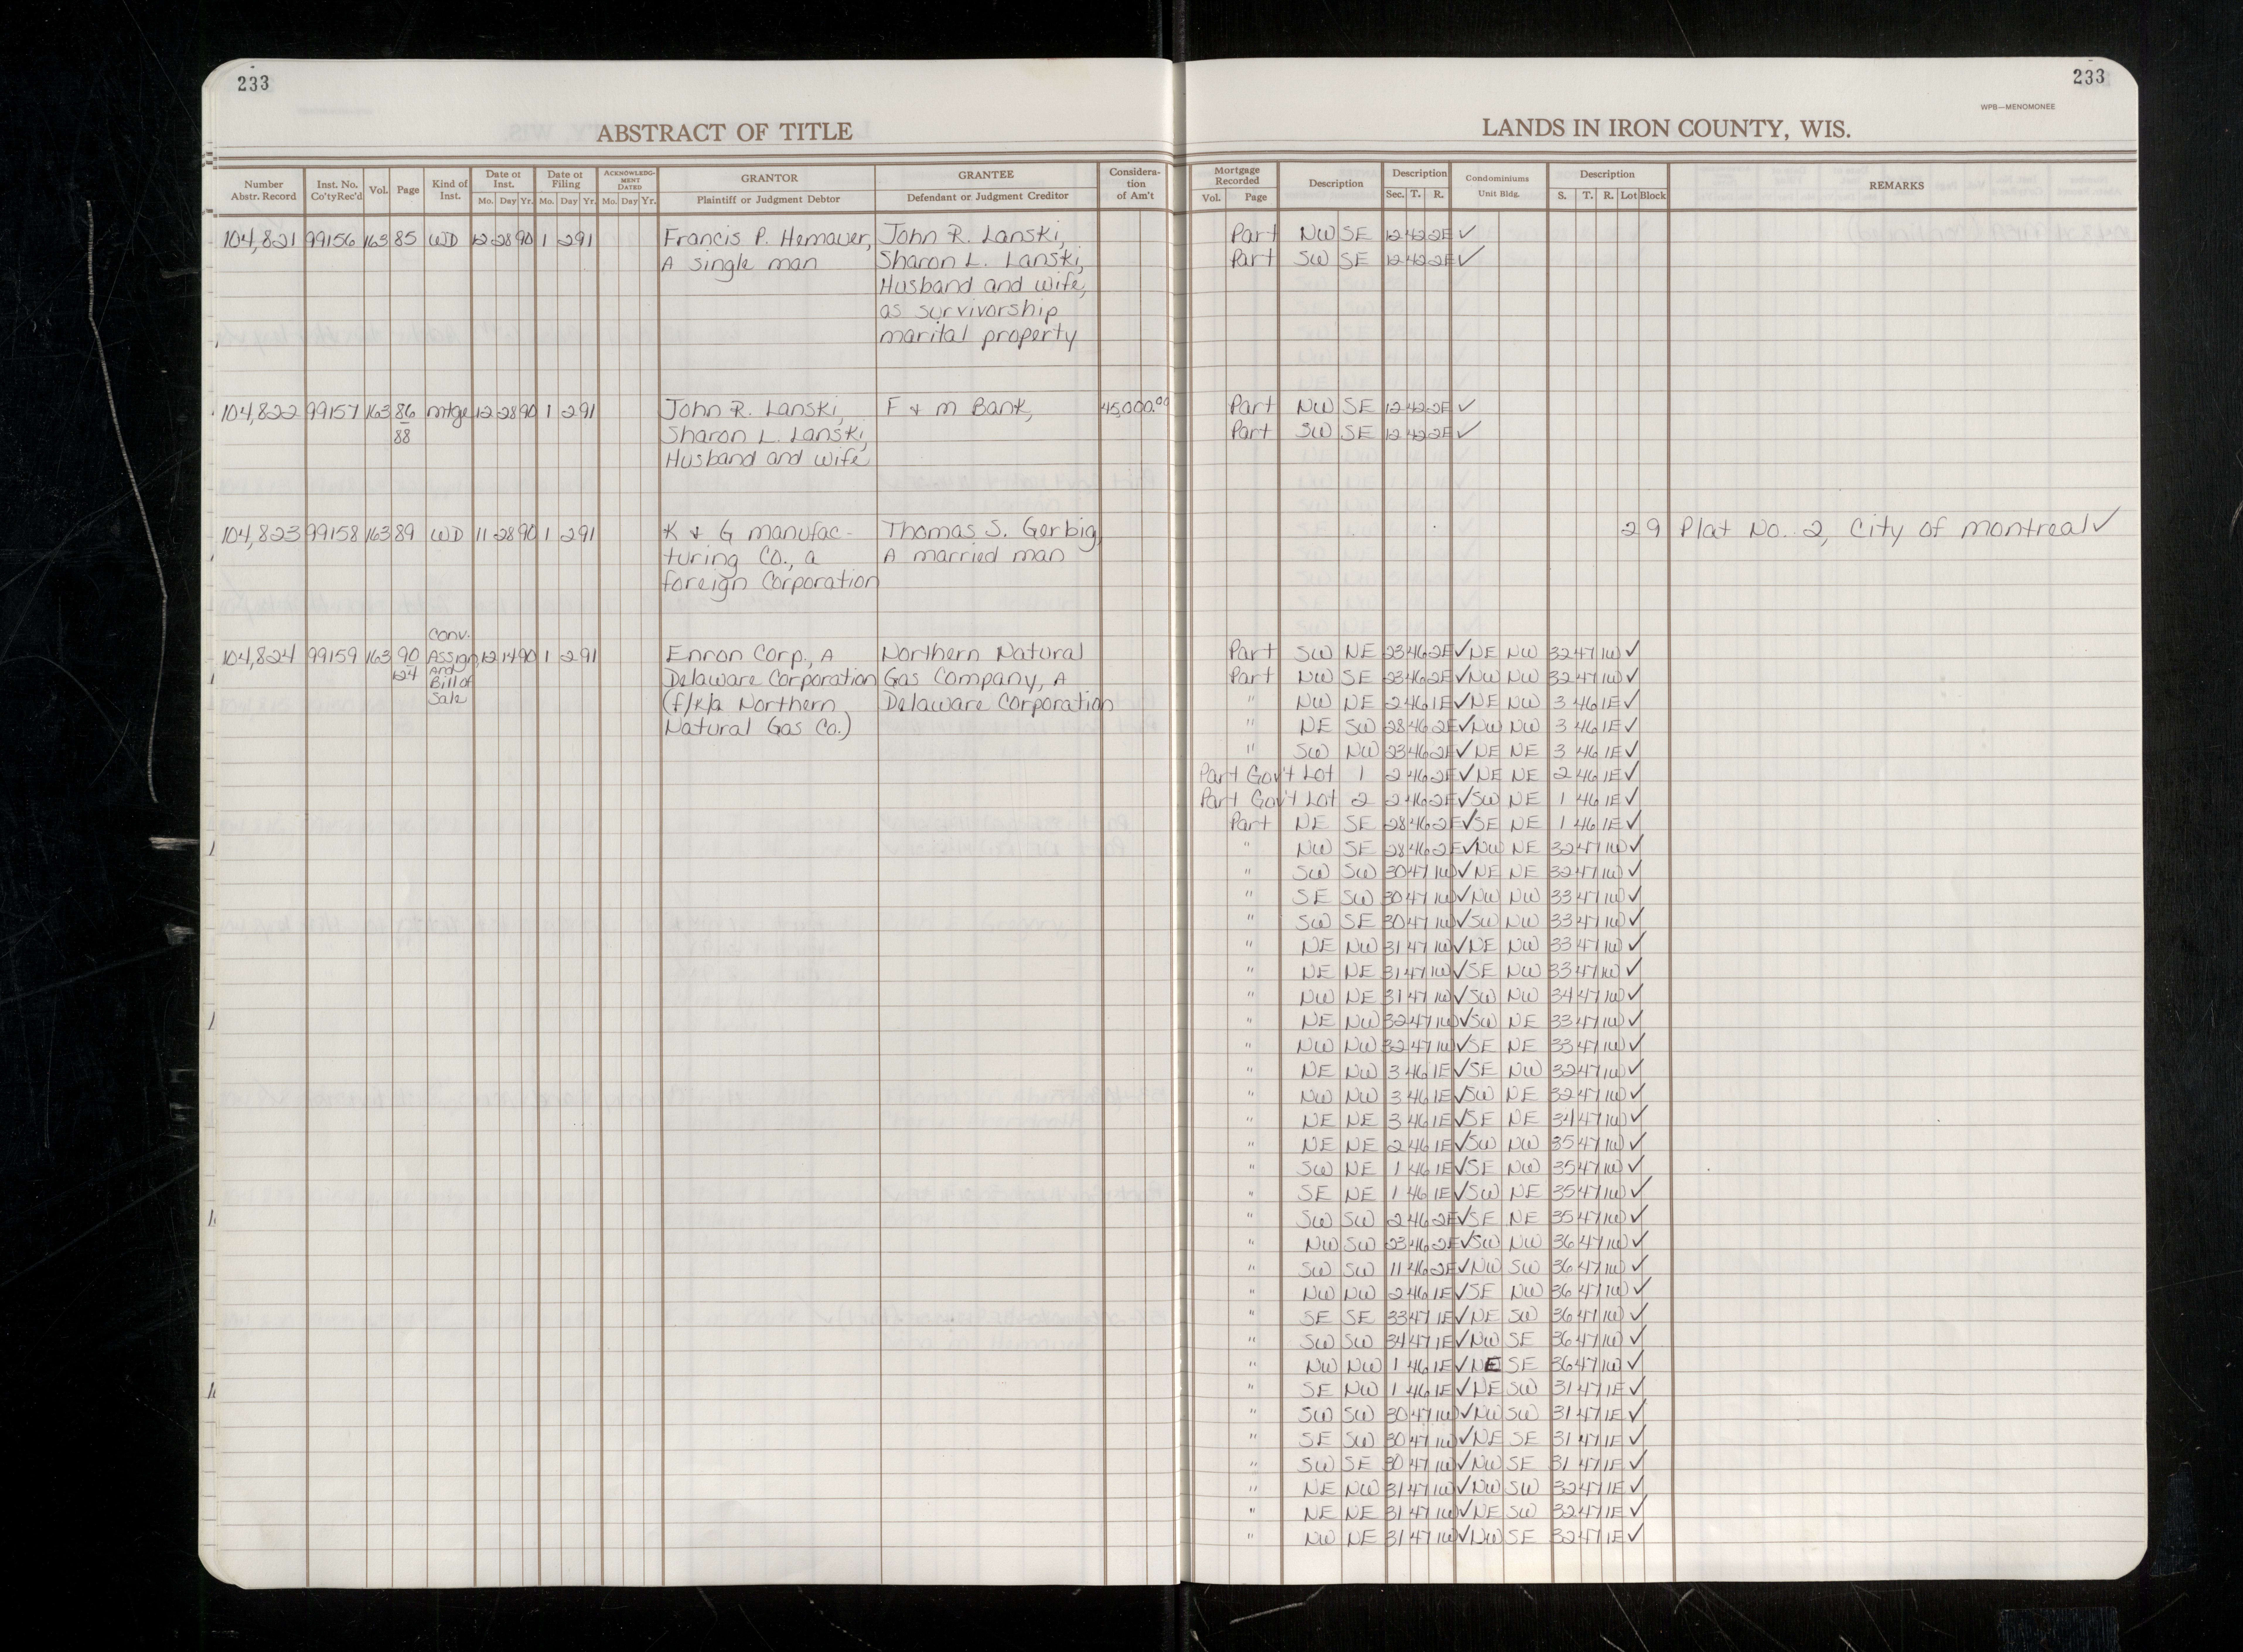 233
233
WPB—MENOMONEE
ABSTRACT OF TITLE
LANDS IN IRON COUNTY, WIS.
Number Abstr. Record
Inst. No. Co'ty Rec'd
Vol.
Page
Kind of Inst.
Date of Inst.
Mo. Day Yr.
Date of Filing
Mo. Day Yr.
ACKNOWLEDG-MENT DATED
Mo. Day Yr.
GRANTOR
Plaintiff or Judgment Debtor
GRANTEE
Defendant or Judgment Creditor
Considera-tion of Am't
Mortgage Recorded
Vol. Page
Description
Description
Sec. T. R.
Condominiums
Unit Bldg.
Description
S. T. R. Lot Block
REMARKS
104,821 99156 163 85 WD 12 28 90 1 2 91 Francis P. Hemauer, John R. Lanski, Part NW SE 12 42 2E ✓
A single man Sharon L. Lanski, Part SW SE 12 42 2E ✓
Husband and wife,
as survivorship
marital property
104,822 99157 163 86 mtge 12 28 90 1 2 91 John R. Lanski, F & m Bank, 45,000.00 Part NW SE 12 42 2E ✓
88 Sharon L. Lanski, Part SW SE 12 42 2E ✓
Husband and wife
104,823 99158 163 89 WD 11 28 90 1 2 91 K & G manufac- Thomas S. Gerbig, 2 9 Plat No. 2, City of montreal ✓
turing Co., a A married man
foreign Corporation
Conv.
104,824 99159 163 90 Assign, 12 14 90 1 2 91 Enron Corp., A Northern Natural Part SW NE 23 46 2E ✓ NE NW 32 47 1W ✓
124 And Bill of Delaware Corporation Gas Company, A Part NW SE 23 46 2E ✓ NW NW 32 47 1W ✓
Sale (f/k/a Northern Delaware Corporation " NW NE 2 46 1E ✓ NE NW 3 46 1E ✓
Natural Gas Co.) " NE SW 28 46 2E ✓ NW NW 3 46 1E ✓
" SW NW 23 46 2E ✓ NE NE 3 46 1E ✓
Part Gov't Lot 1 2 46 2E ✓ NE NE 2 46 1E ✓
Part Gov't Lot 2 2 46 2E ✓ SW NE 1 46 1E ✓
Part NE SE 28 46 2E ✓ SE NE 1 46 1E ✓
" NW SE 28 46 2E ✓ NW NE 32 47 1W ✓
" SW SW 30 47 1W ✓ NE NE 32 47 1W ✓
" SE SW 30 47 1W ✓ NW NW 33 47 1W ✓
" SW SE 30 47 1W ✓ SW NW 33 47 1W ✓
" NE NW 31 47 1W ✓ NE NW 33 47 1W ✓
" NE NE 31 47 1W ✓ SE NW 33 47 1W ✓
" NW NE 31 47 1W ✓ SW NW 34 47 1W ✓
" NE NW 32 47 1W ✓ SW NE 33 47 1W ✓
" NW NW 32 47 1W ✓ SE NE 33 47 1W ✓
" NE NW 3 46 1E ✓ SE NW 32 47 1W ✓
" NW NW 3 46 1E ✓ SW NE 32 47 1W ✓
" NE NE 3 46 1E ✓ SE NE 34 47 1W ✓
" NE NE 2 46 1E ✓ SW NW 35 47 1W ✓
" SW NE 1 46 1E ✓ SE NW 35 47 1W ✓
" SE NE 1 46 1E ✓ SW NE 35 47 1W ✓
" SW SW 2 46 2E ✓ SE NE 35 47 1W ✓
" NW SW 23 46 2E ✓ SW NW 36 47 1W ✓
" SW SW 11 46 2E ✓ NW SW 36 47 1W ✓
" NW NW 2 46 1E ✓ SE NW 36 47 1W ✓
" SE SE 33 47 1E ✓ NE SW 36 47 1W ✓
" SW SW 34 47 1E ✓ NW SE 36 47 1W ✓
" NW NW 1 46 1E ✓ NE SE 36 47 1W ✓
" SE NW 1 46 1E ✓ NE SW 31 47 1E ✓
" SW SW 30 47 1W ✓ NW SW 31 47 1E ✓
" SE SW 30 47 1W ✓ NE SE 31 47 1E ✓
" SW SE 30 47 1W ✓ NW SE 31 47 1E ✓
" NE NW 31 47 1W ✓ NW SW 32 47 1E ✓
" NE NE 31 47 1W ✓ NE SW 32 47 1E ✓
" NW NE 31 47 1W ✓ NW SE 32 47 1E ✓